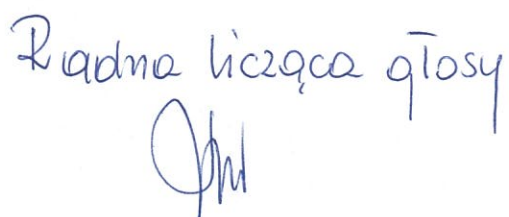 Radna licząca głosy